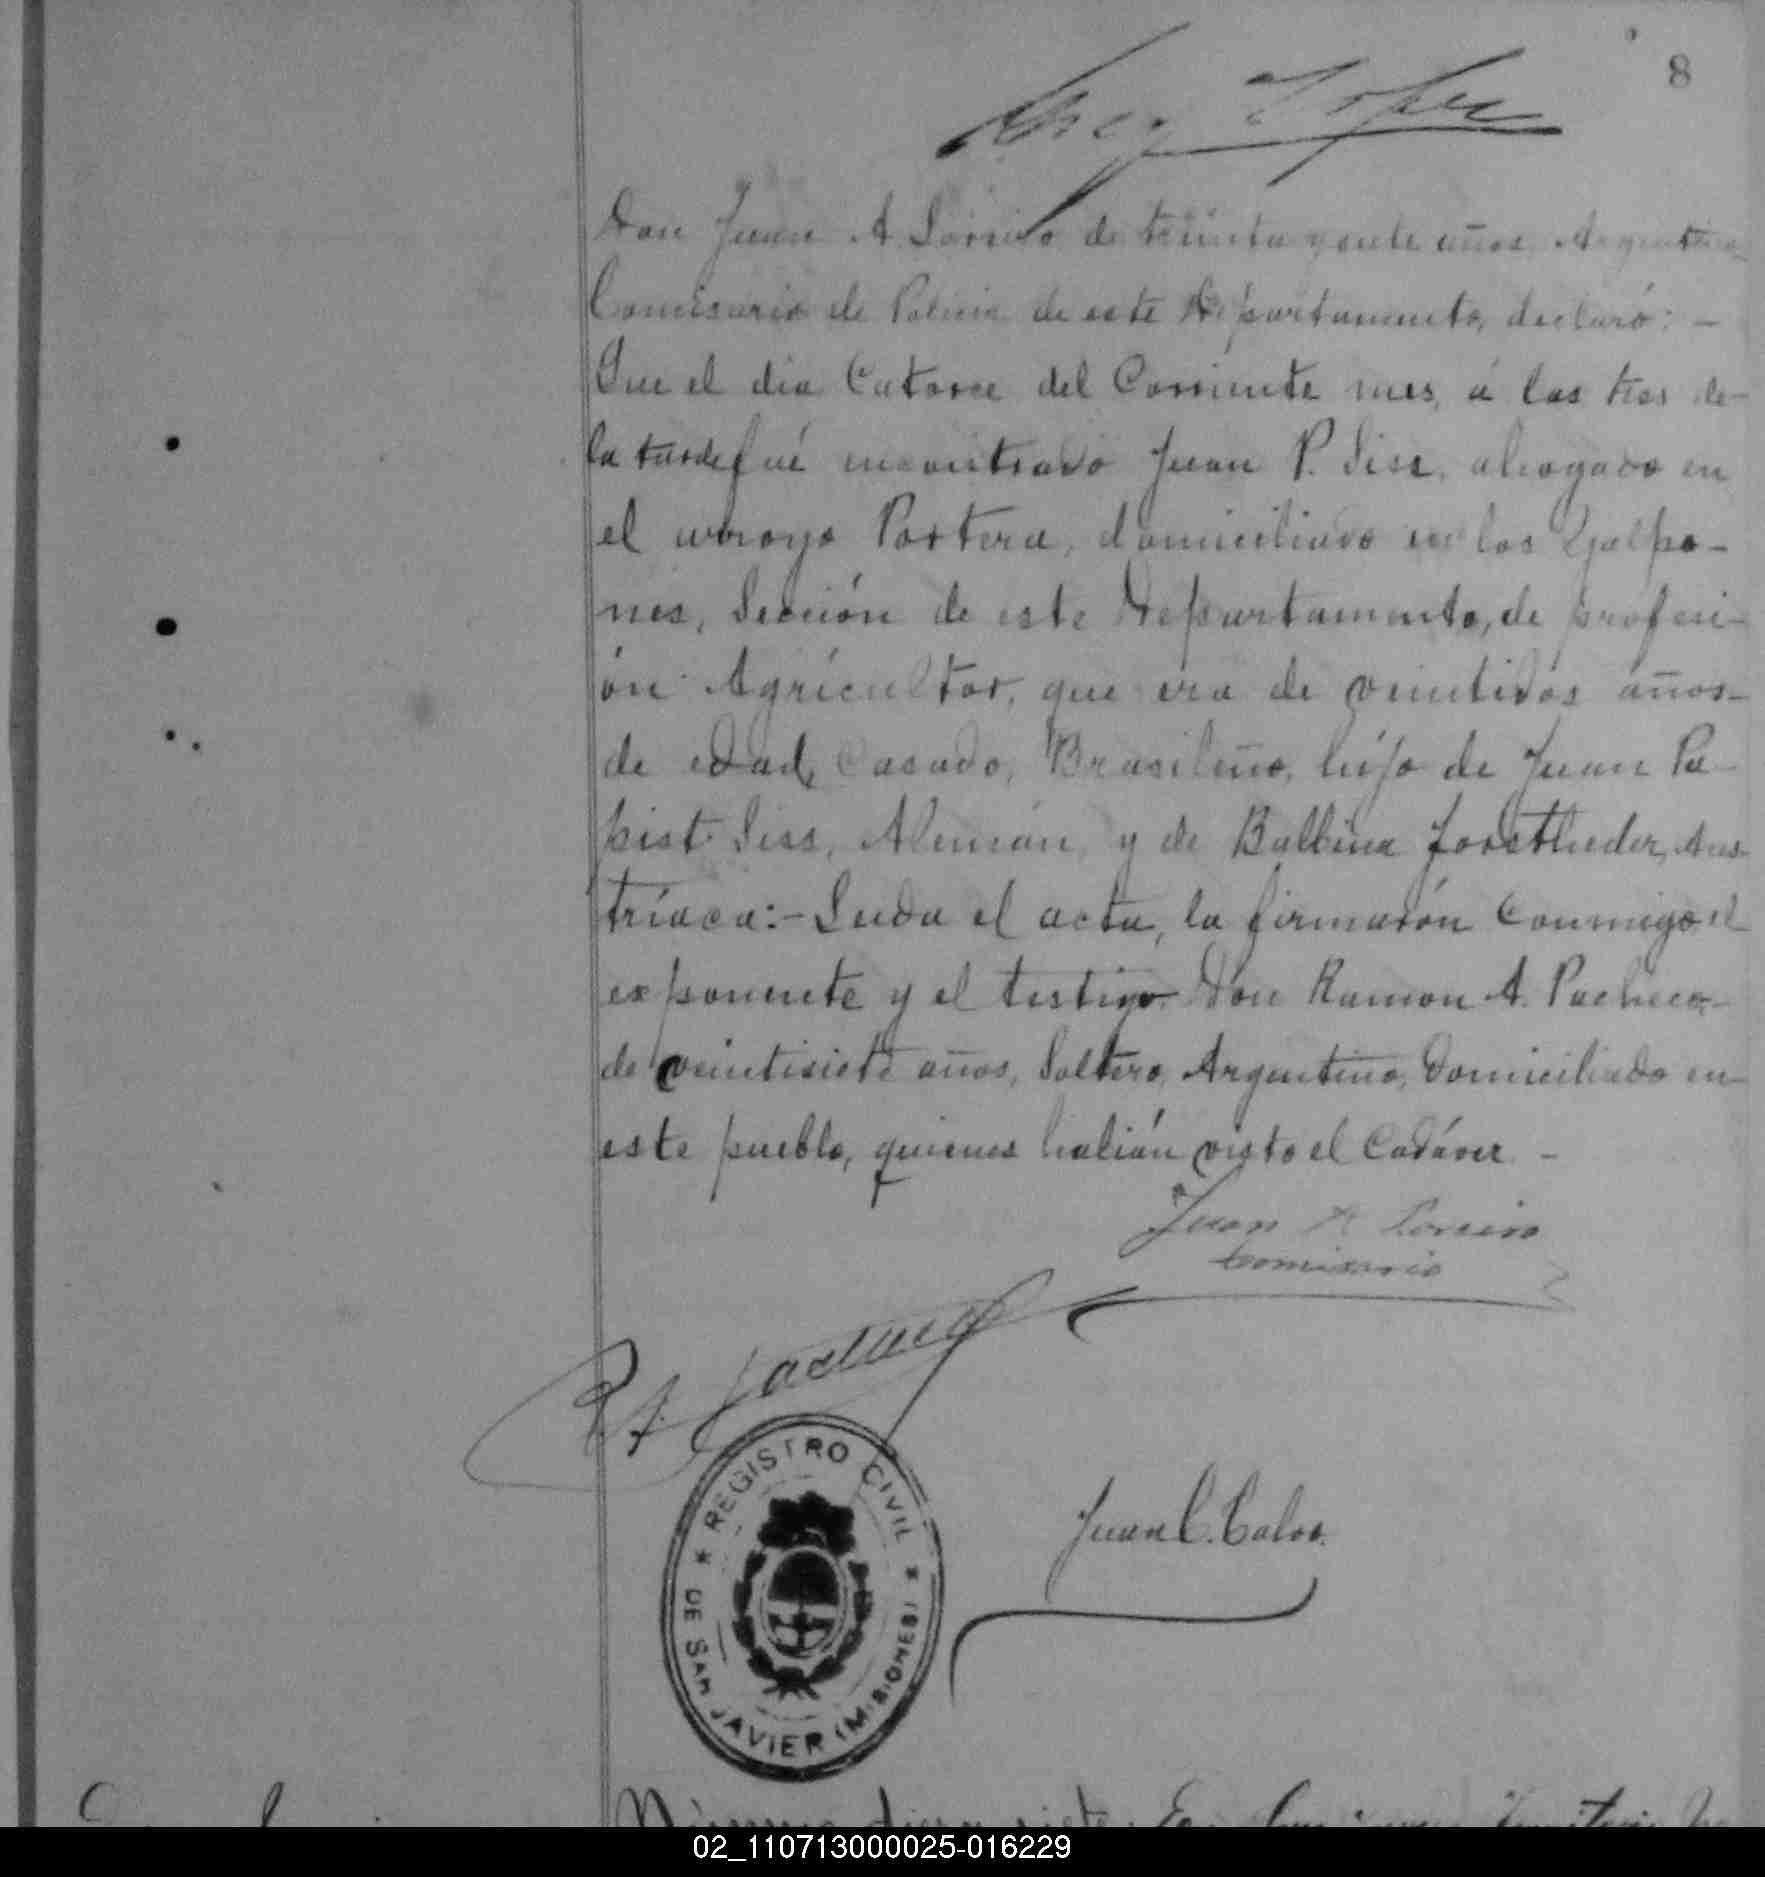 8
Lopez
Don Juan A Loreiro de treinta y siete años, Argentino,
Comisario de Policia de este Departamento, declaró: -
Que el dia Catorce del Corriente mes, á las tres de-
la tarde fué encontrado Juan P. Siss, ahogado en
el arroyo Portera, domiciliado en los Galpo-
nes, Sección de este Departamento, de profesi-
ón Agricultor, que era de veintidos años-
de edad, Casado, Brasileño, hijo de Juan Pa-
pist Siss, Alemán, y de Balbina Forstheder, Aus-
tríaca:- Leida el acta, la firmarón Conmigo el
exponente y el testigo Don Ramon A. Pacheco,-
de veintisiete años, Soltero, Argentino, Domiciliado en-
este pueblo, quienes habián visto el Cadáver -
Juan A Loreiro
Comisario
R A. Pacheco
REGISTRO CIVIL
DE SAN JAVIER (MISIONES)
Juan C. Calvo.
02_110713000025-016229